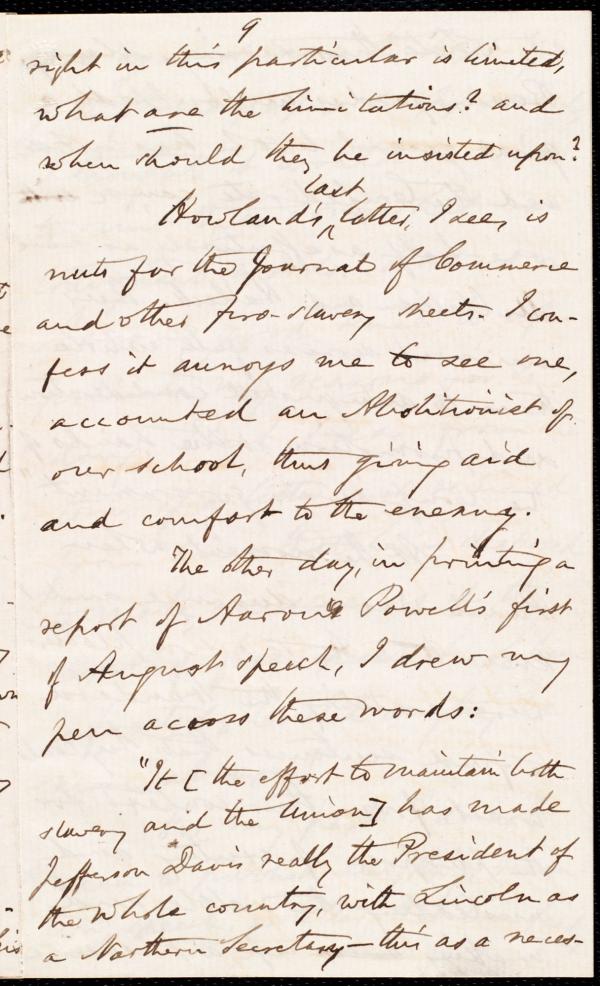 9
right in this particular is limited,
what are the limitations? and
when should they be insisted upon?
last
Howland's ^ letter, I see, is
nuts for the Journal of Commerce
and other pro-slavery sheets. I con-
fess it annoys me to see one,
accounted an Abolitionist of
our school, thus giving aid
and comfort to the enemy.
The other day, in printing a
report of Aaron Powell's first
of August speech, I drew my
pen across these words:
"It [the effort to maintain both
slavery and the Union] has made
Jefferson Davis really the President of
the whole country, with Lincoln as
a Northern Secretary—this as a neces-